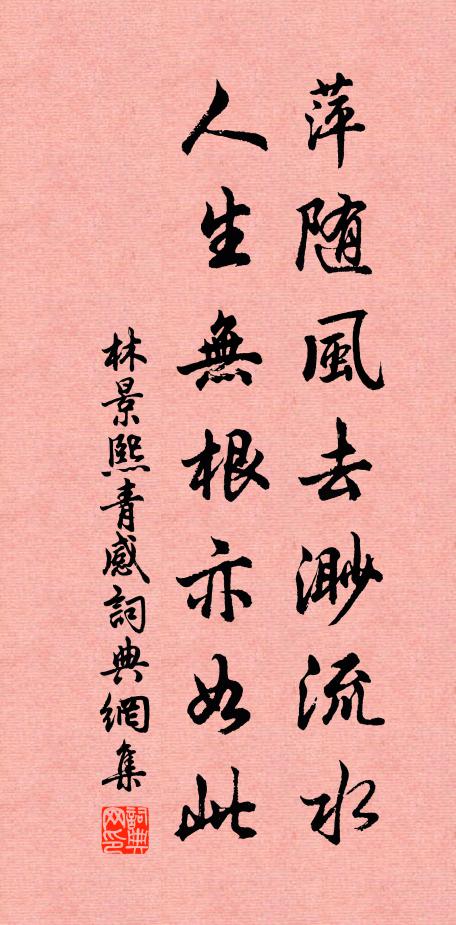 萍随風去渺流水
人生無根亦如此
林景熙青感詞典網集
詞典網印